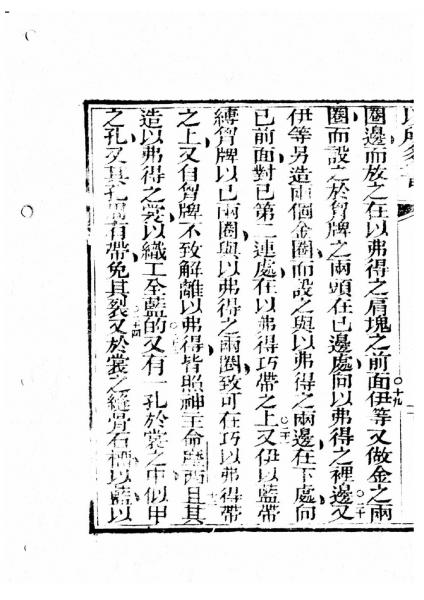 圈邊而放之在以弗得之肩塊之前面○十九伊等又做金之兩
圈而設之於胷牌之兩頭在已邊處向以弗得之裡邊○二十又
伊等另造兩個金圈而設之與以弗得之兩邊在下處向
已前面對已第二連處在以弗得巧帶之上○二一又伊以藍帶
縛胷牌以已兩圈與以弗得之兩圈致可在巧以弗得帶
之上又自胷牌不致解離以弗得皆照神主命摩西且其
造以弗得之裳以織工全藍的又有一孔於裳之中似甲
之孔又其孔週有帶免其裂又於裳之縫骨石榴以藍以